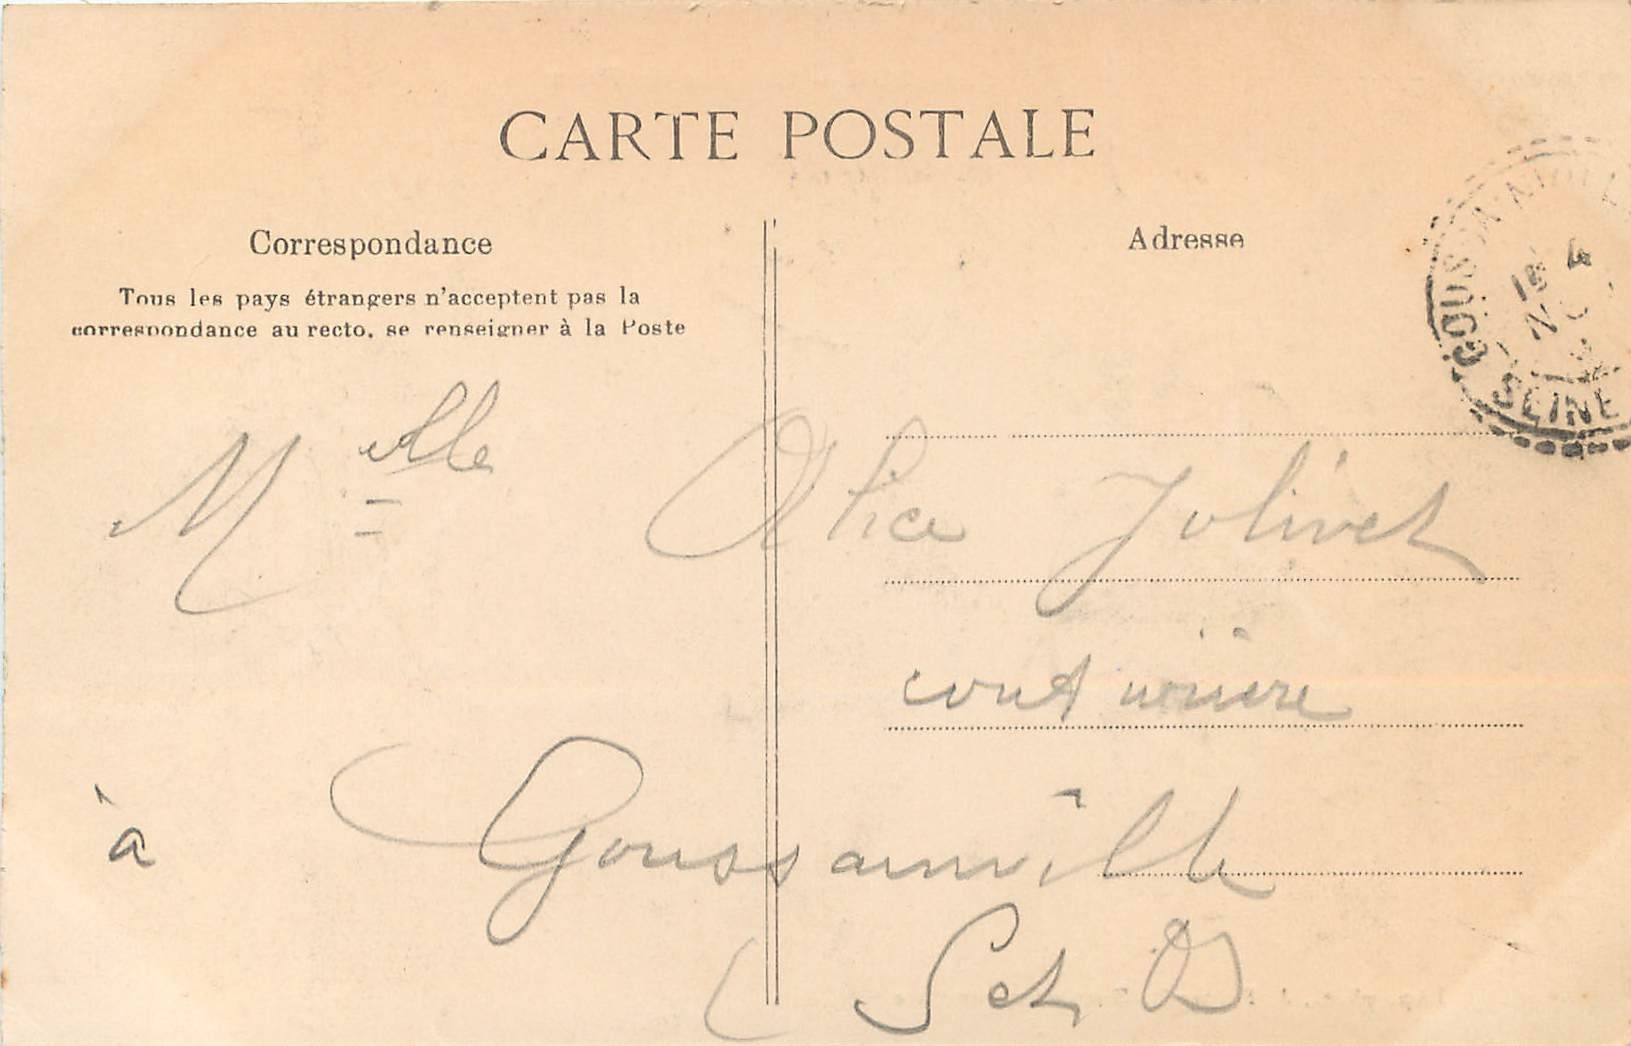 CARTE POSTALE
Correspondance
Adresse
Tous les pays étrangers n'acceptent pas la
correspondance au recto, se renseigner à la Poste
GOUSSAINVILLE
SEINE
Melle Alice Jolivet
couturière
à Goussainville
S et O